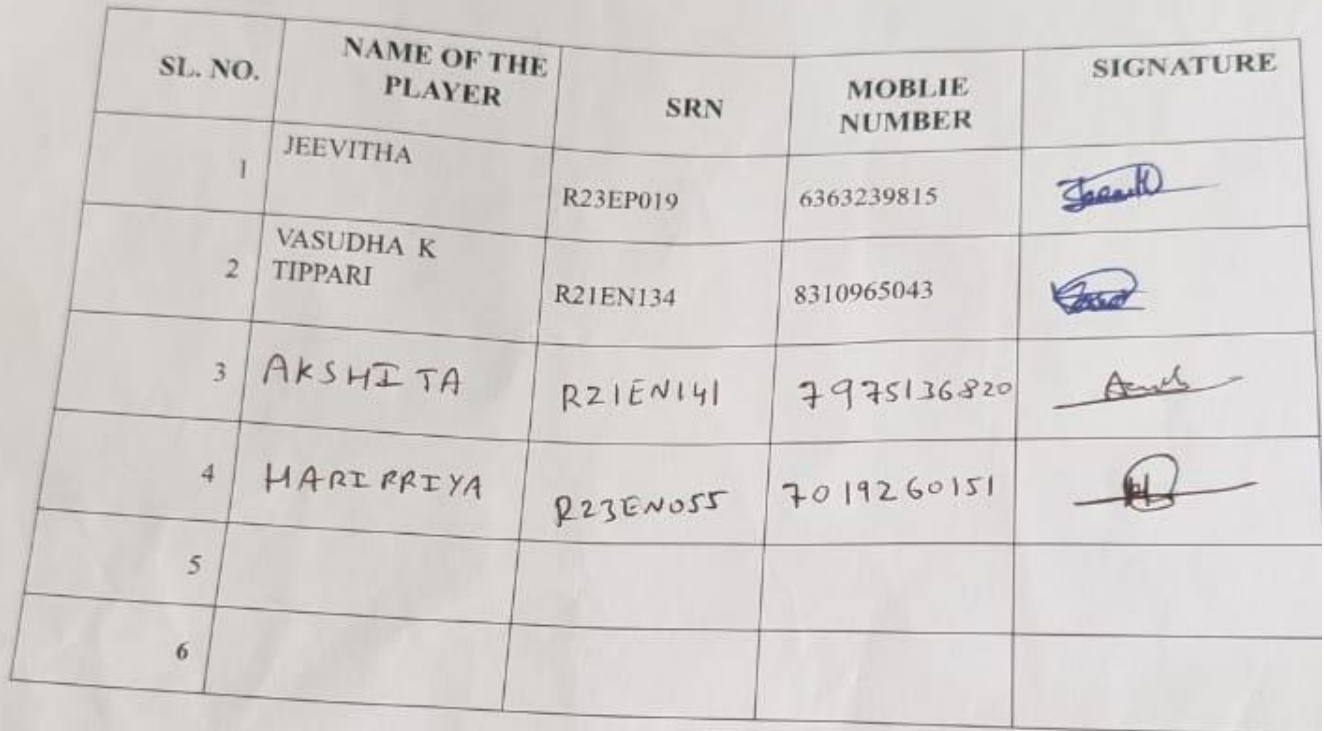 SL. NO. NAME OF THE PLAYER SRN MOBLIE NUMBER SIGNATURE
1 JEEVITHA R23EP019 6363239815
2 VASUDHA K TIPPARI R21EN134 8310965043
3 AKSHITA R21EN141 7975136820
4 HARIPRIYA R23EN055 7019260151
5
6